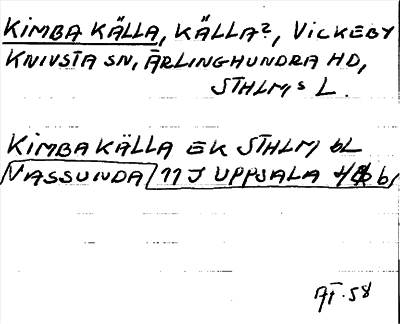 KIMBA KÄLLA, KÄLLA?, VICKEBY
KNIVSTA SN, ÄRLINGHUNDRA HD,
STHLMS L.
KIMBAKÄLLA EK STHLM bL
VASSUNDA 11 J UPPSALA
AT.58